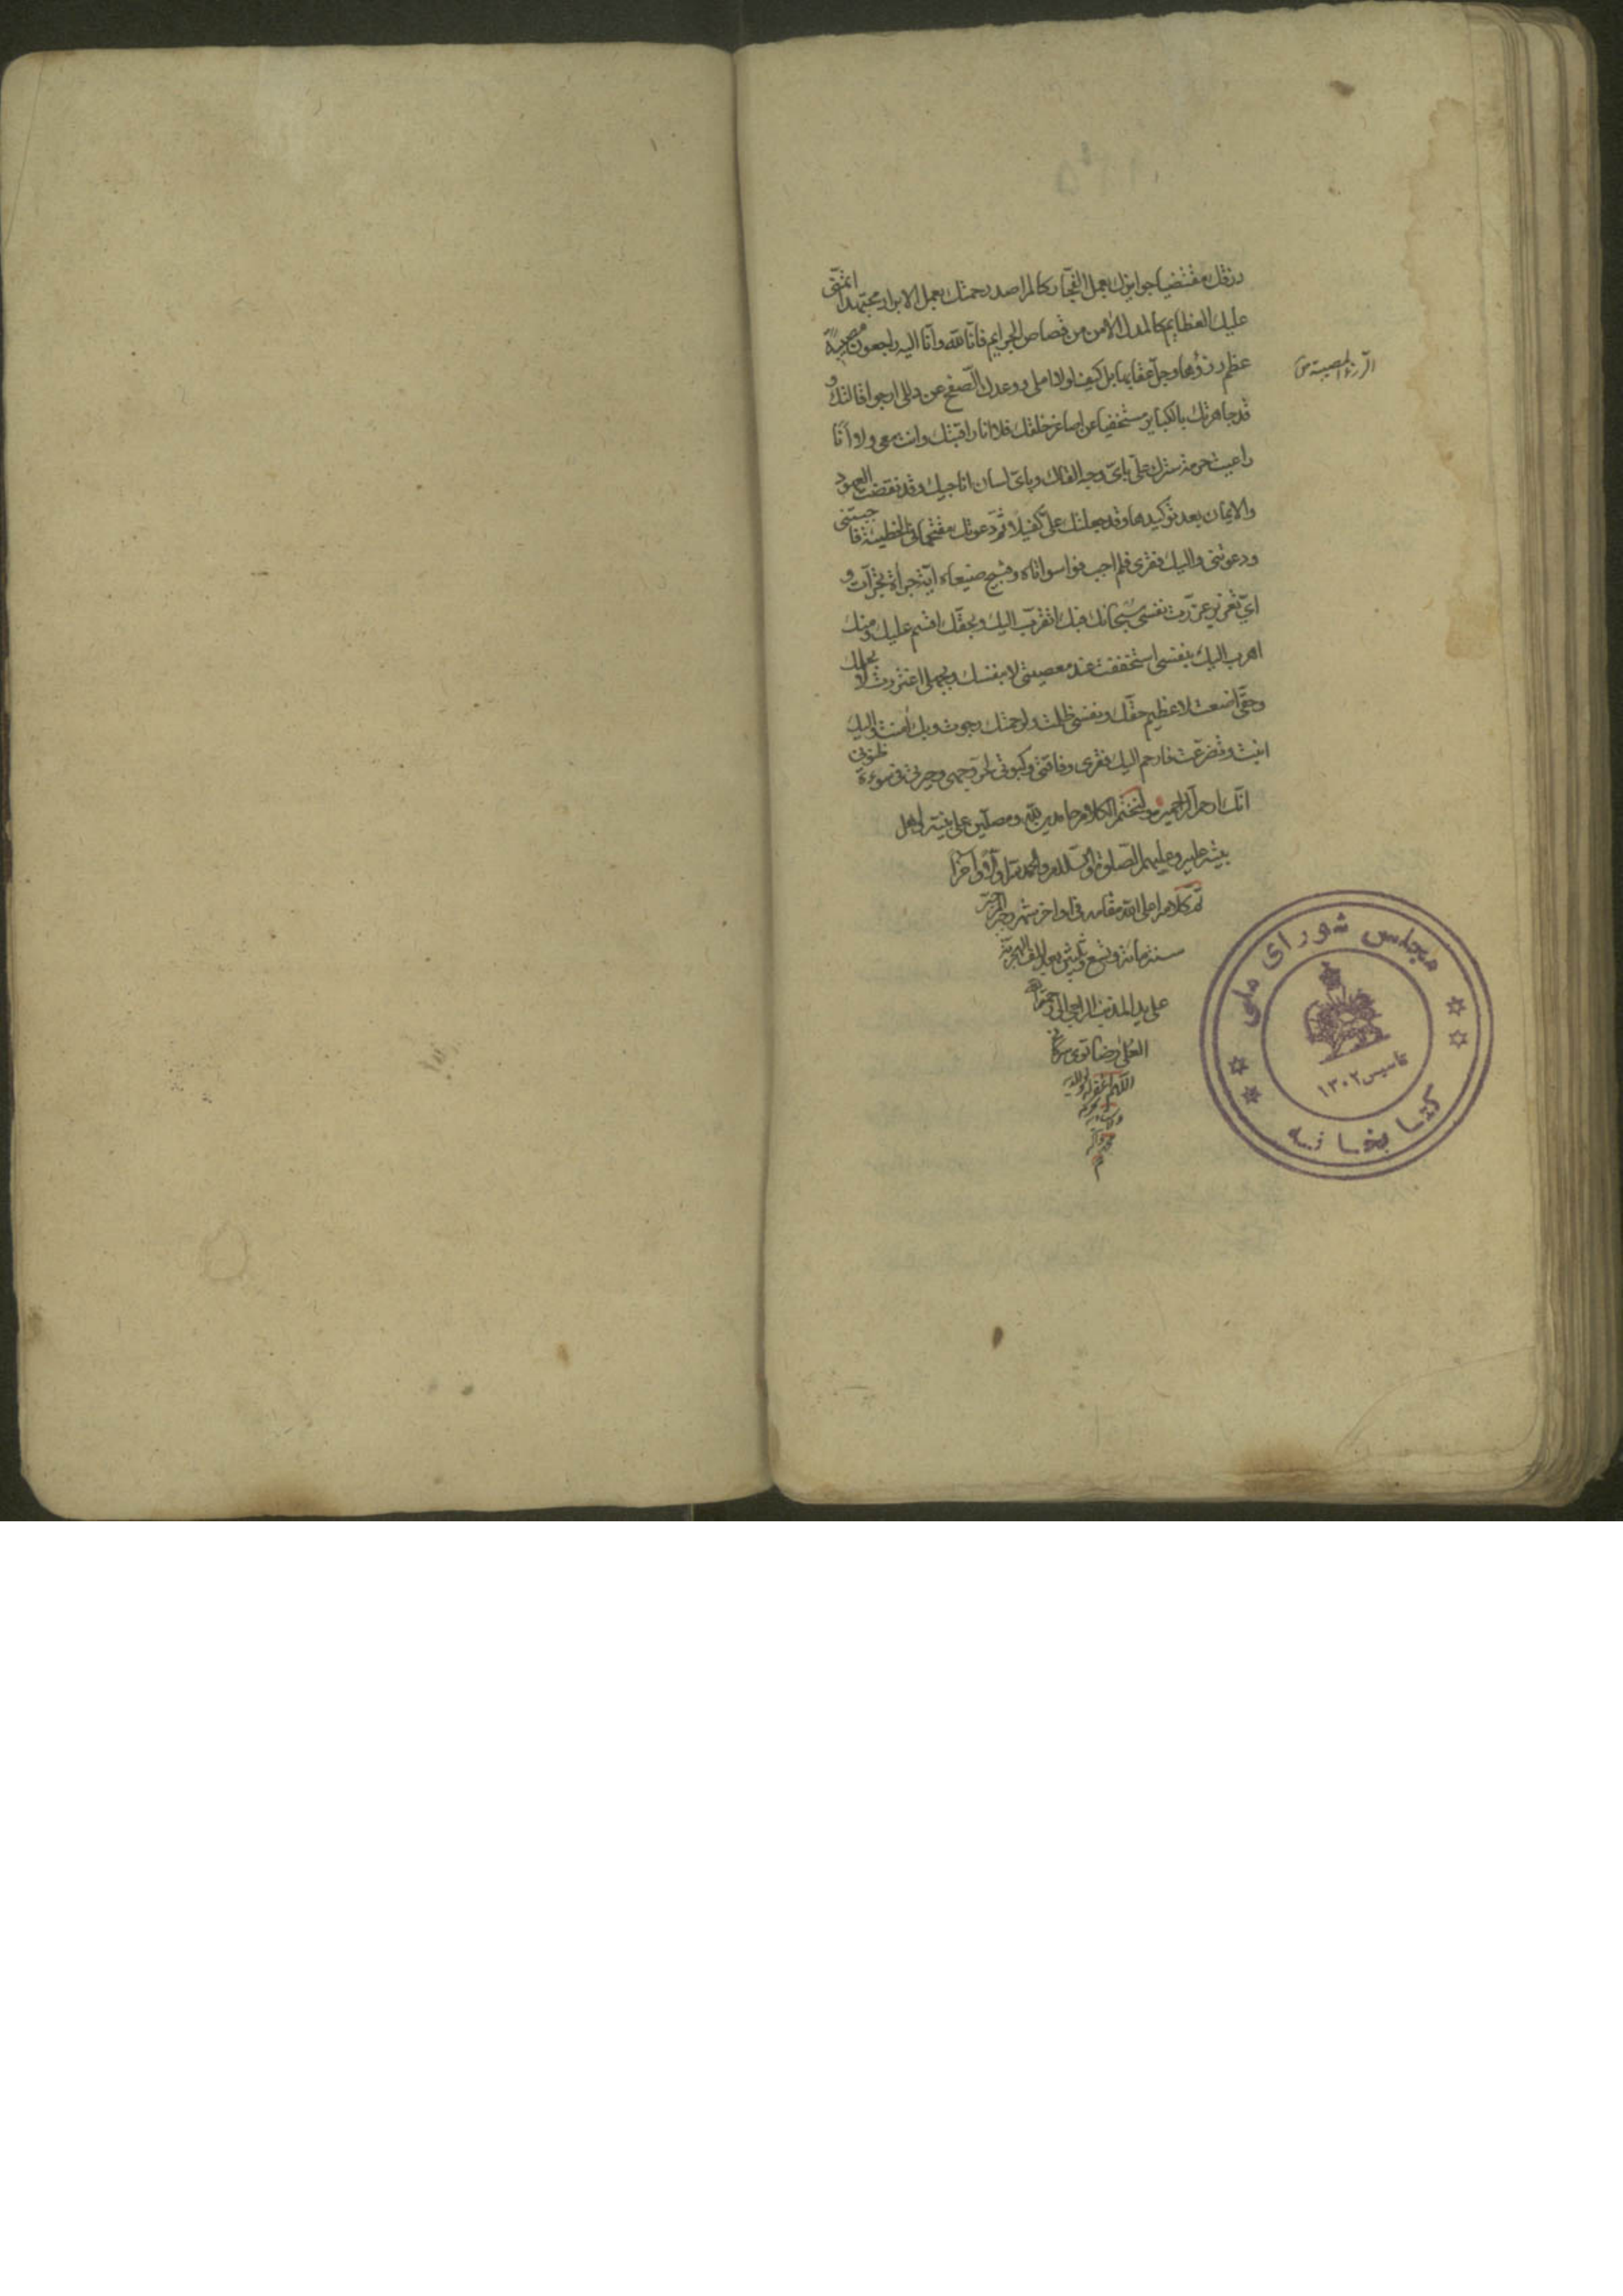 رزقك مقتضيا جوايزك بعمل الفجار كالمراصد رحمتك بعمل الابرار مجتهدا اتمنّى
عليك العظايم كالمدل الآمن من قصاص الجرايم فانّا لله وانّا اليه راجعون مصيبة
عظم رزؤها وجلّ عقابها بل كيف لولا املي ووعدك الصّفح عن زللي ارجو اقالتك و
قد جاهرتك بالكباير مستخفيا عن اصاغر خلقك فلا انا راقبتك وانت معي ولا انا
راعيت حرمة سترك عليّ بايّ وجه القاك وبايّ لسان اناجيك وقد نقضت العهود
والايمان بعد توكيدها وقد جعلتك عليّ كفيلا ثمّ دعوتك مقتحما في الخطيئة فاجبتني
ودعوتني واليك فقري فلم اجب فوا سواتاه وقبيح صنيعاه ايّة جراة تجرّات و
ايّ تغرير غرّرت نفسي سبحانك فبك اتقرّب اليك وبحقّك اقسم عليك ومنك
اهرب اليك بنفسي استخففت عند معصيتي لا بنفسك وبجهلي اغتررت لا بحلمك
وحقّي اضعت لا عظيم حقّك ونفسي ظلمت ولرحمتك رجوت وبك آمنت واليك
انبت وتضرّعت فارحم اليك فقري وفاقتي وكبوتي لحرّ وجهي وحيرتي في سوءة
انّك ارحم الرّاحمين ولنختم الكلام حامدين لله ومصلّين على نبيّه واهل
بيته عليه وعليهم الصّلوة والسّلام والحمد لله اوّلا وآخرا
تمّ كلامه اعلى الله مقامه في اواخر شهر رجب المرجّب
سنة مائة وتسع وثلثين بعد الالف الهجرية
على يد المذنب الراجي الى رحمة الله
اللّهم اغفر له ولوالديه
الرّزء المصيبة ص
مجلس شورای ملی
تاسیس ۱۳۰۲
کتابخانه